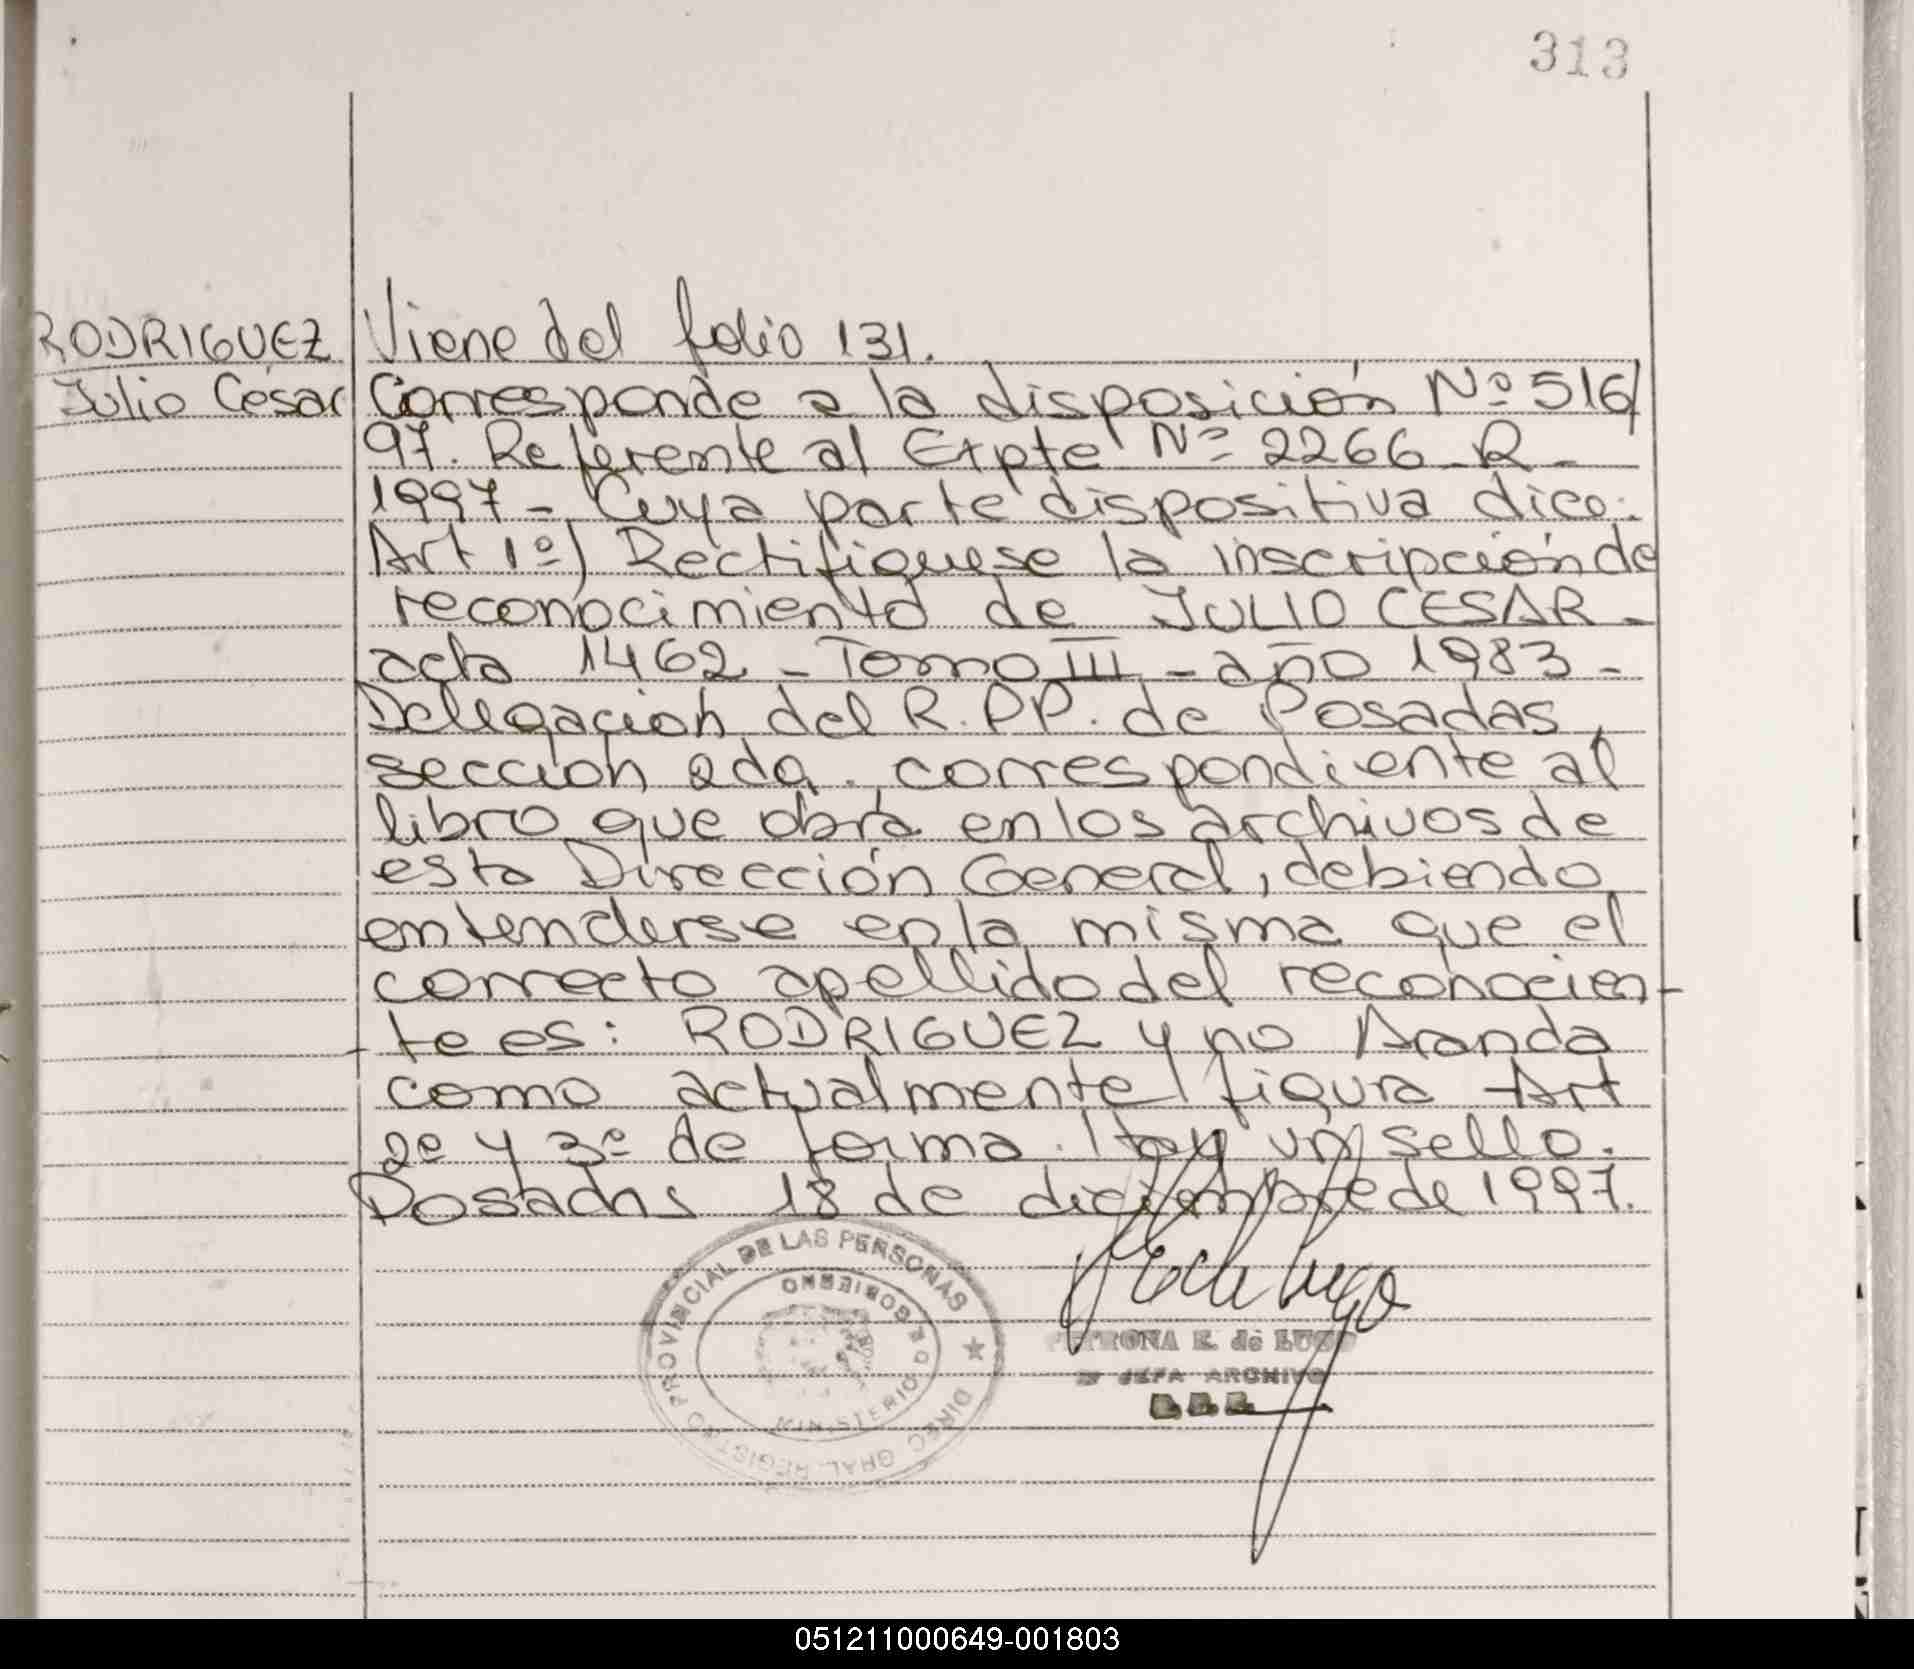 313
RODRIGUEZ
Julio César
Viene del folio 131.
Corresponde a la disposición Nº 516/
97. Referente al Expte Nº 2266-R-
1997- Cuya parte dispositiva dice:
Art 1º) Rectifiquese la inscripción de
reconocimiento de JULIO CESAR-
acta 1462 - Tomo III - año 1983 -
Delegación del R.P.P. de Posadas,
sección 2da. correspondiente al
libro que obra en los archivos de
esta Dirección General, debiendo
entenderse en la misma que el
correcto apellido del reconocien-
te es: RODRIGUEZ y no Aranda
como actualmente figura Art
2º y 3º de forma. Hay un sello.
Posadas 18 de diciembre de 1997.
DIREC GRAL. REGISTRO PROVINCIAL DE LAS PERSONAS
MINISTERIO DE GOBIERNO
PETRONA E. de LUGO
JEFA ARCHIVO
051211000649-001803